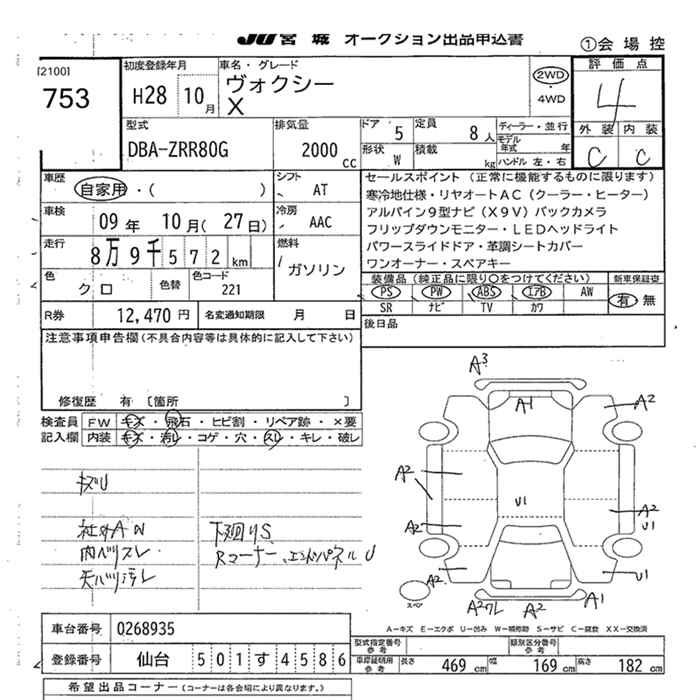 JU 宮城 オークション出品申込書
①会場控
[2100]
753
初度登録年月
H28 10月
車名・グレード
ヴォクシー
X
2WD
・4WD
評価点
4
外装 内装
C C
型式
DBA-ZRR80G
排気量
2000 cc
ドア 5
定員 8人
ディーラー・並行
モデル年式 年
形状 W
積載 kg
ハンドル 左・右
車歴
自家用・( )
シフト
AT
車検
09年 10月(27日)
冷房
AAC
走行
8万9千572km
燃料
ガソリン
色
クロ
色替
色コード
221
R券 12,470円
名変通知期限 月 日
セールスポイント(正常に機能するものに限ります)
寒冷地仕様・リヤオートAC(クーラー・ヒーター)
アルパイン9型ナビ(X9V)バックカメラ
フリップダウンモニター・LEDヘッドライト
パワースライドドア・革調シートカバー
ワンオーナー・スペアキー
装備品(純正品に限り〇をつけてください)
新車保証書
PS PW ABS エアB AW
有 無
SR ナビ TV カワ
後日品
注意事項申告欄(不具合内容等は具体的に記入して下さい)
修復歴 有〔箇所 〕
検査員記入欄
FW キズ・飛石・ヒビ割・リペア跡・×要
内装 キズ・汚レ・コゲ・穴・スレ・キレ・破レ
キズU
社外AW
下廻りS
内ハゲスレ
Rコーナー、エンドパネルU
天バリ汚レ
A3
A1
A2
A2
A2
A2
U1
A2
U1
A2
U1
スペア
A2ワレ
A2
A1
A―キズ E―エクボ U―凹み W―補修跡 S―サビ C―腐食 XX―交換済
車台番号 0268935
登録番号 仙台 501す4586
型式指定番号参考
類別区分番号参考
車庫証明用参考 長さ 469cm 幅 169cm 高さ 182cm
希望出品コーナー(コーナーは各会場により異なります。)